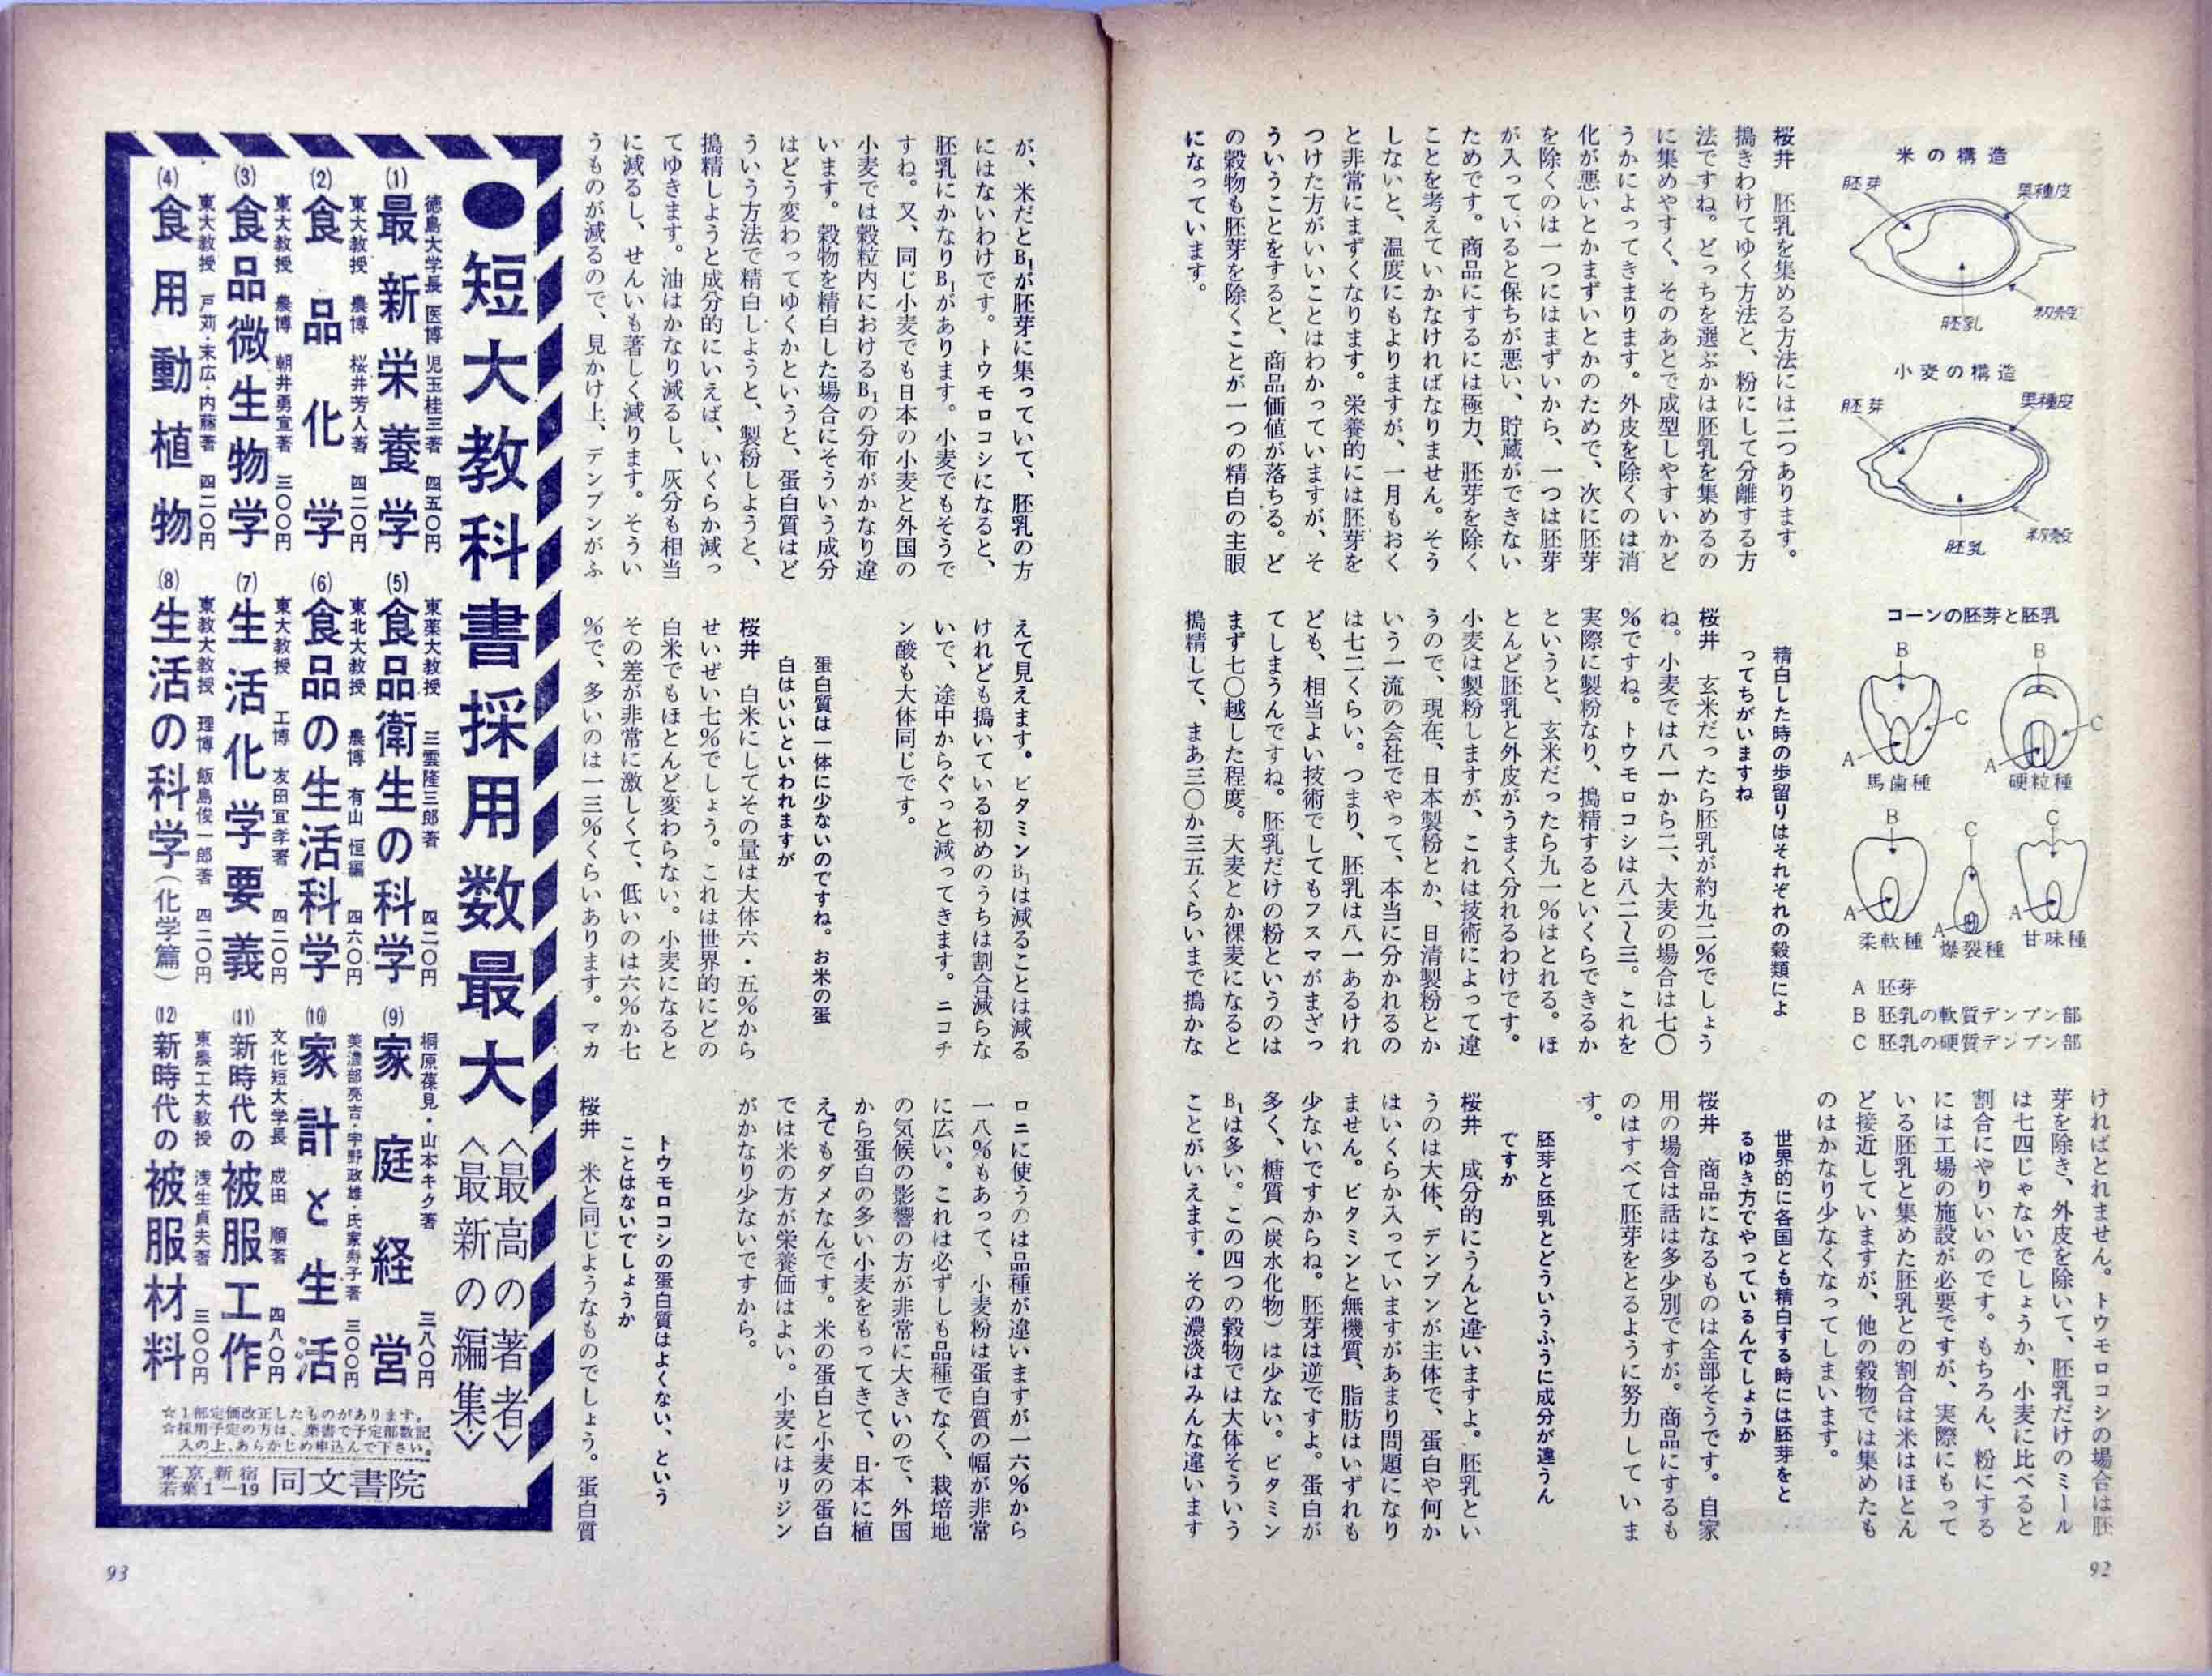 米の構造
胚芽
果種皮
胚乳
籾殻
小麦の構造
胚芽
果種皮
胚乳
籾殻
コーンの胚芽と胚乳
B
C
A
馬歯種
B
C
A
硬粒種
B
A
柔軟種
C
A
爆裂種
C
A
甘味種
A 胚芽
B 胚乳の軟質デンプン部
C 胚乳の硬質デンプン部
桜井 胚乳を集める方法には二つあります。
搗きわけてゆく方法と、粉にして分離する方
法ですね。どっちを選ぶかは胚乳を集めるの
に集めやすく、そのあとで成型しやすいかど
うかによってきまります。外皮を除くのは消
化が悪いとかまずいとかのためで、次に胚芽
を除くのは一つにはまずいから、一つは胚芽
が入っていると保ちが悪い、貯蔵ができない
ためです。商品にするには極力、胚芽を除く
ことを考えていかなければなりません。そう
しないと、温度にもよりますが、一月もおく
と非常にまずくなります。栄養的には胚芽を
つけた方がいいことはわかっていますが、そ
ういうことをすると、商品価値が落ちる。ど
の穀物も胚芽を除くことが一つの精白の主眼
になっています。
精白した時の歩留りはそれぞれの穀類によ
ってちがいますね
桜井 玄米だったら胚乳が約九二%でしょう
ね。小麦では八一から二、大麦の場合は七〇
%ですね。トウモロコシは八二〜三。これを
実際に製粉なり、搗精するといくらできるか
というと、玄米だったら九一%はとれる。ほ
とんど胚乳と外皮がうまく分れるわけです。
小麦は製粉しますが、これは技術によって違
うので、現在、日本製粉とか、日清製粉とか
いう一流の会社でやって、本当に分かれるの
は七二くらい。つまり、胚乳は八一あるけれ
ども、相当よい技術でしてもフスマがまざっ
てしまうんですね。胚乳だけの粉というのは
まず七〇越した程度。大麦とか裸麦になると
搗精して、まあ三〇か三五くらいまで搗かな
ければとれません。トウモロコシの場合は胚
芽を除き、外皮を除いて、胚乳だけのミール
は七四じゃないでしょうか、小麦に比べると
割合にやりいいのです。もちろん、粉にする
には工場の施設が必要ですが、実際にもって
いる胚乳と集めた胚乳との割合は米はほとん
ど接近していますが、他の穀物では集めたも
のはかなり少なくなってしまいます。
世界的に各国とも精白する時には胚芽をと
るゆき方でやっているんでしょうか
桜井 商品になるものは全部そうです。自家
用の場合は話は多少別ですが。商品にするも
のはすべて胚芽をとるように努力していま
す。
胚芽と胚乳とどういうふうに成分が違うん
ですか
桜井 成分的にうんと違いますよ。胚乳とい
うのは大体、デンプンが主体で、蛋白や何か
はいくらか入っていますがあまり問題になり
ません。ビタミンと無機質、脂肪はいずれも
少ないですからね。胚芽は逆ですよ。蛋白が
多く、糖質（炭水化物）は少ない。ビタミン
B₁は多い。この四つの穀物では大体そういう
ことがいえます。その濃淡はみんな違います
92
が、米だとB₁が胚芽に集っていて、胚乳の方
にはないわけです。トウモロコシになると、
胚乳にかなりB₁があります。小麦でもそうで
すね。又、同じ小麦でも日本の小麦と外国の
小麦では穀粒内におけるB₁の分布がかなり違
います。穀物を精白した場合にそういう成分
はどう変わってゆくかというと、蛋白質はど
ういう方法で精白しようと、製粉しようと、
搗精しようと成分的にいえば、いくらか減っ
てゆきます。油はかなり減るし、灰分も相当
に減るし、せんいも著しく減ります。そうい
うものが減るので、見かけ上、デンプンがふ
えて見えます。ビタミンB₁は減ることは減る
けれども搗いている初めのうちは割合減らな
いで、途中からぐっと減ってきます。ニコチ
ン酸も大体同じです。
蛋白質は一体に少ないのですね。お米の蛋
白はいいといわれますが
桜井 白米にしてその量は大体六・五%から
せいぜい七%でしょう。これは世界的にどの
白米でもほとんど変わらない。小麦になると
その差が非常に激しくて、低いのは六%か七
%で、多いのは一三%くらいあります。マカ
ロニに使うのは品種が違いますが一六%から
一八%もあって、小麦粉は蛋白質の幅が非常
に広い。これは必ずしも品種でなく、栽培地
の気候の影響の方が非常に大きいので、外国
から蛋白の多い小麦をもってきて、日本に植
えてもダメなんです。米の蛋白と小麦の蛋白
では米の方が栄養価はよい。小麦にはリジン
がかなり少ないですから。
トウモロコシの蛋白質はよくない、という
ことはないでしょうか
桜井 米と同じようなものでしょう。蛋白質
●短大教科書採用数最大
〈最高の著者〉
〈最新の編集〉
徳島大学長 医博 児玉桂三著 四五〇円
(1)最新栄養学
東大教授 農博 桜井芳人著 四二〇円
(2)食品化学
東大教授 農博 朝井勇宣著 三〇〇円
(3)食品微生物学
東大教授 戸苅・末広・内藤著 四二〇円
(4)食用動植物
東薬大教授 三雲隆三郎著 四二〇円
(5)食品衛生の科学
東北大教授 農博 有山恒編 四六〇円
(6)食品の生活科学
東大教授 工博 友田宜孝著 四二〇円
(7)生活化学要義
東教大教授 理博 飯島俊一郎著 四二〇円
(8)生活の科学（化学篇）
桐原葆見・山本キク著 三八〇円
(9)家庭経営
美濃部亮吉・宇野政雄・氏家寿子著 三〇〇円
(10)家計と生活
文化短大学長 成田順著 四八〇円
(11)新時代の被服工作
東農工大教授 浅生貞夫著 三〇〇円
(12)新時代の被服材料
☆1部定価改正したものがあります。
☆採用予定の方は、葉書で予定部数記
入の上、あらかじめ申込んで下さい。
東京新宿
若葉1−19 同文書院
93